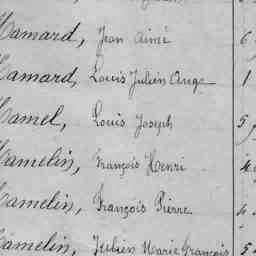 Hamard, Jean Aimé 6
Hamard, Louis Julien Ange 1
Hamel, Louis Joseph 5
Hamelin, François Henri
Hamelin, François Pierre
Hamelin, Julien Marie François 5